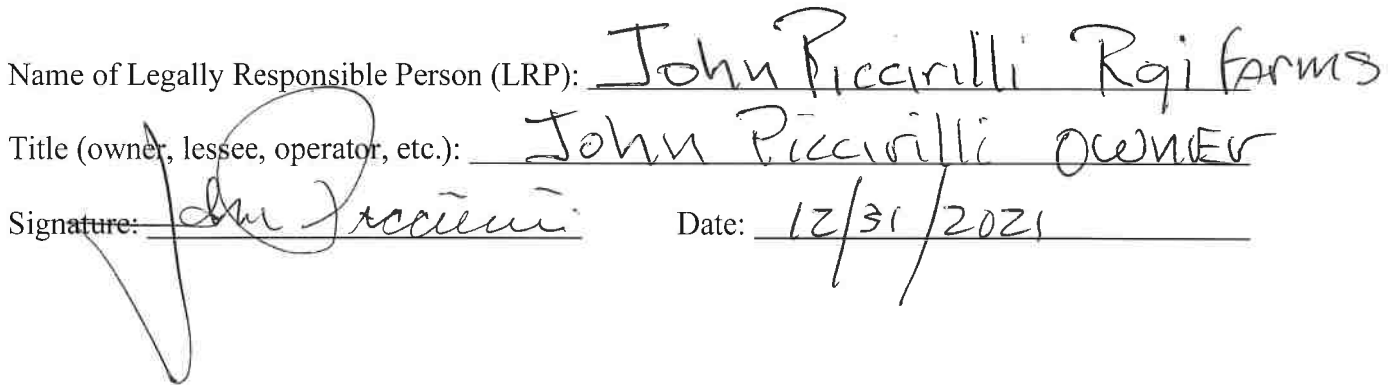 Name of Legally Responsible Person (LRP): John Piccirilli Rqi Farms
Title (owner, lessee, operator, etc.): John Piccirilli OWNEr
Signature: John Piccirilli Date: 12/31/2021